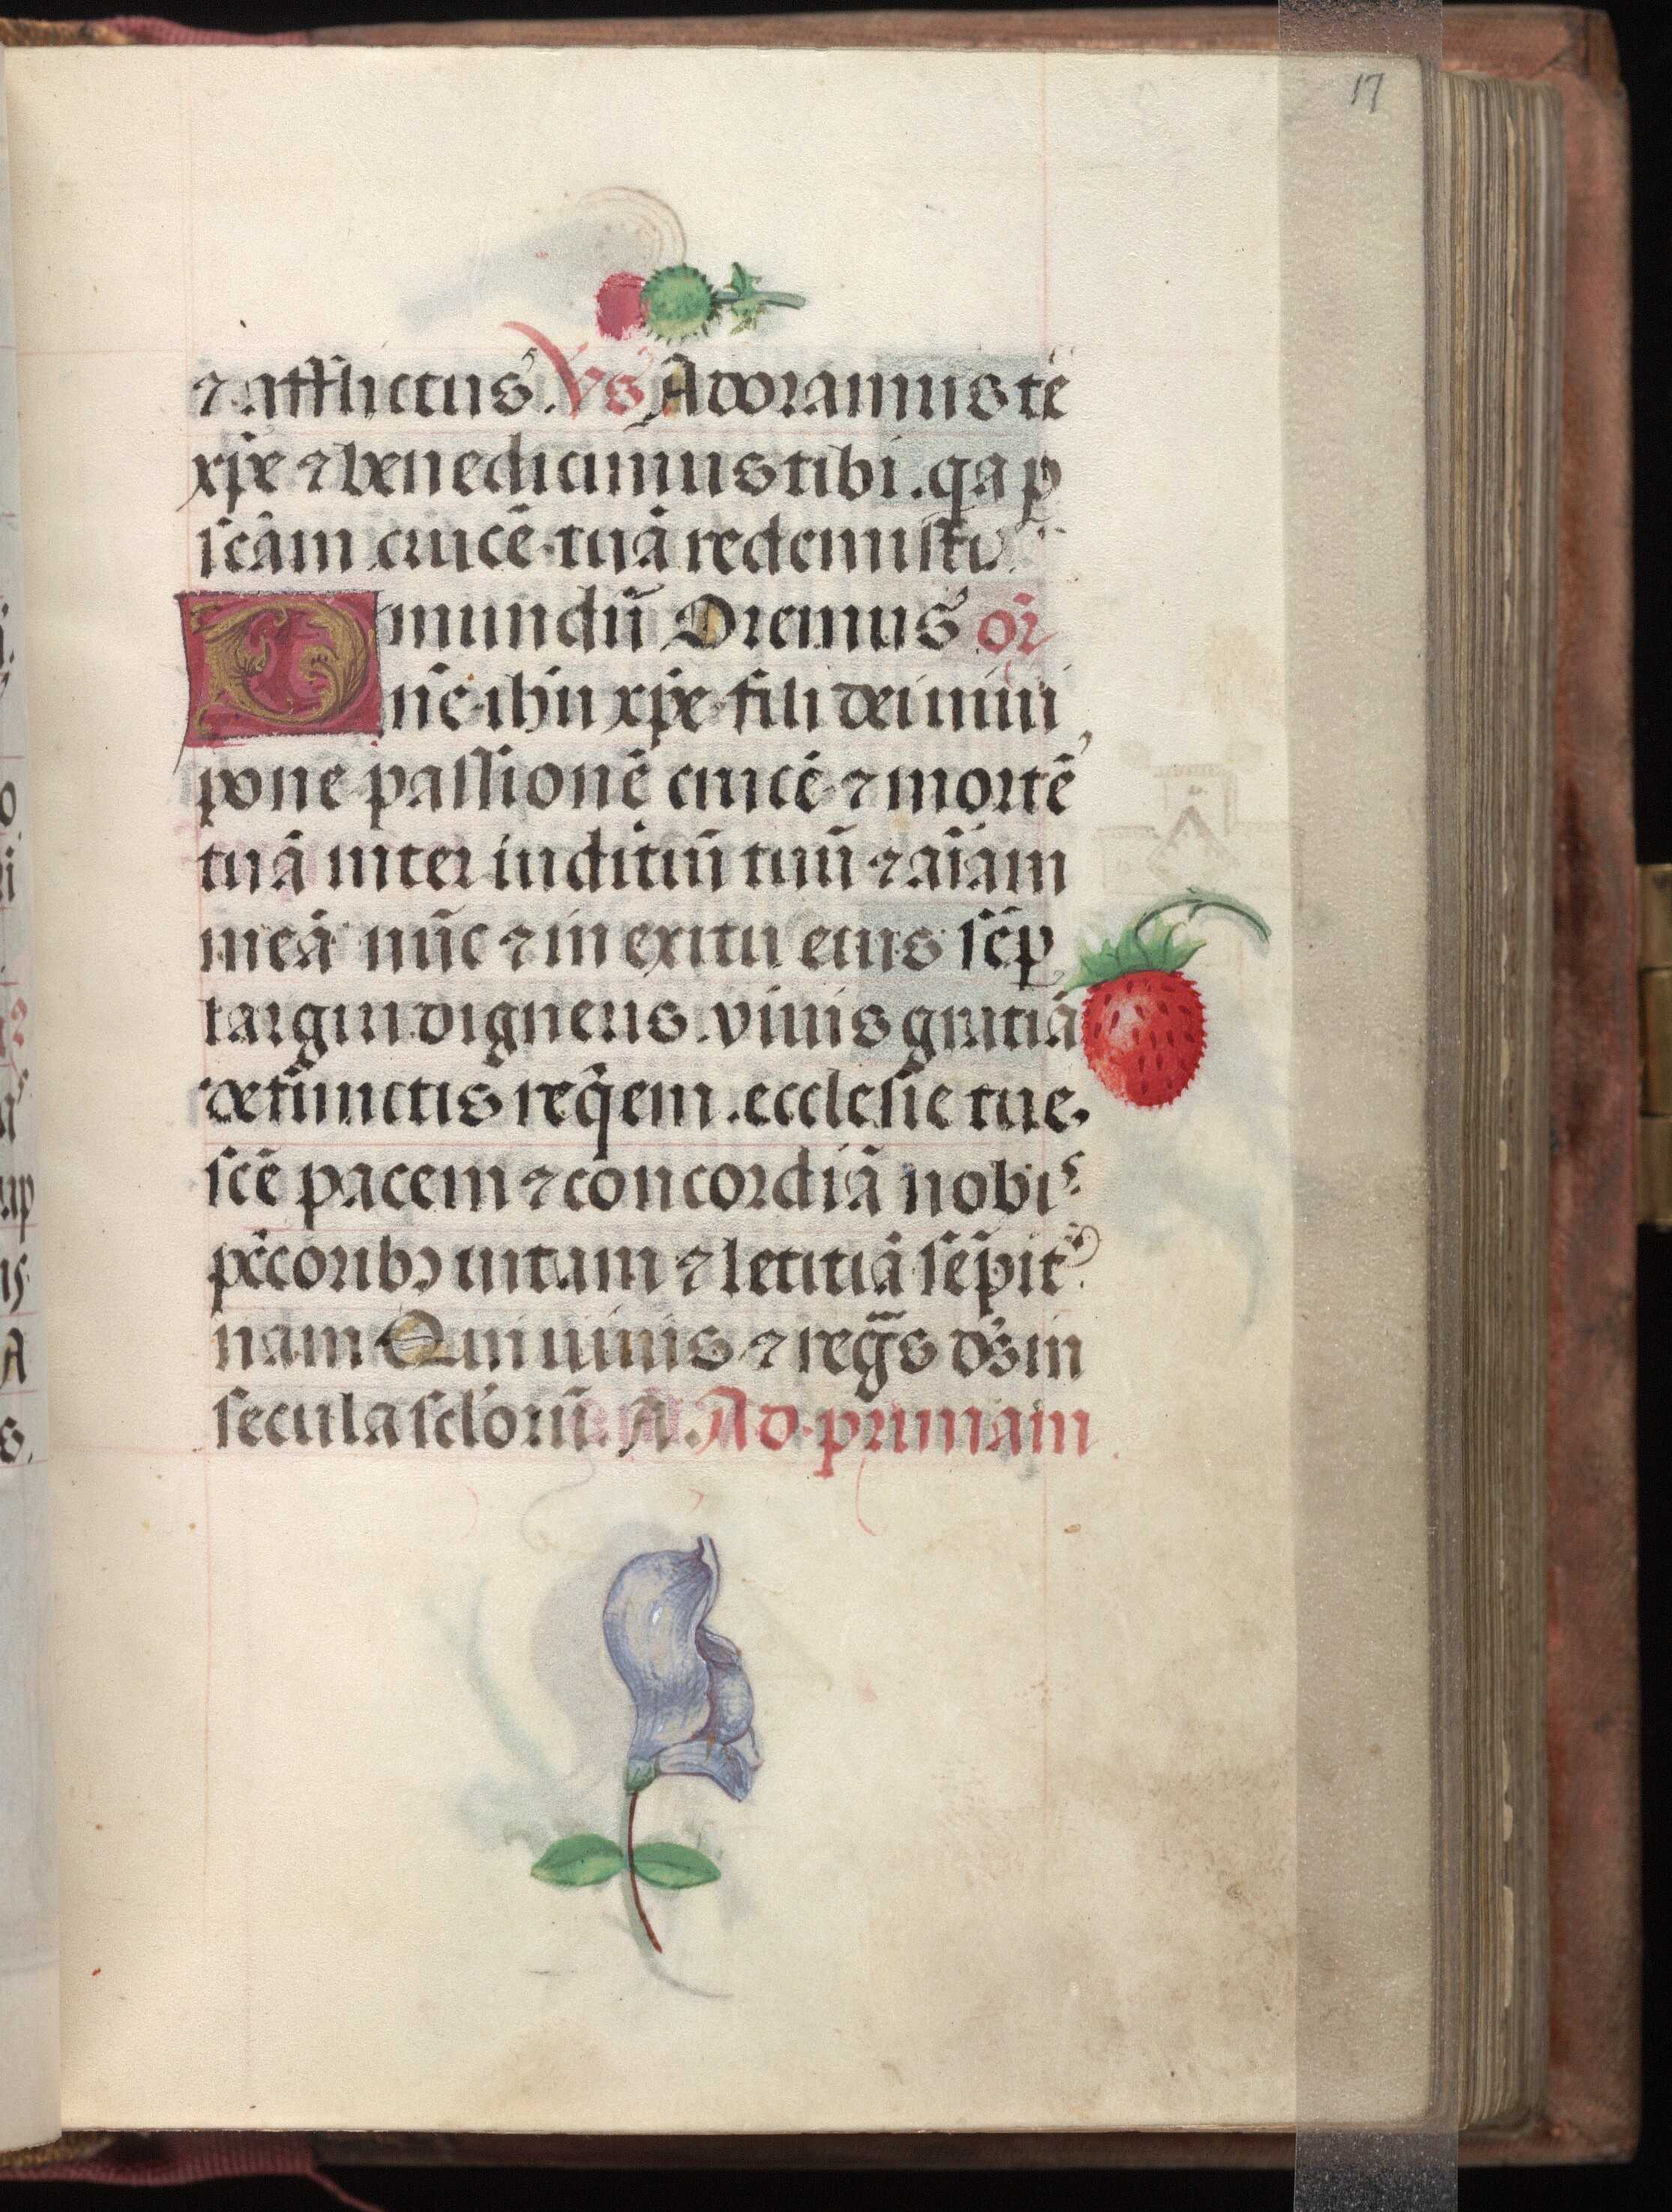 17
⁊ afflictus. Vs Adoramus te
xp̄e ⁊ benedicimus tibi. qa p
scām crucē tuā redemisti
mundū Oremus or̄
Dn̄e ihū xp̄e fili dei uiui
pone passionē crucē ⁊ mortē
tuā inter iuditiū tuū ⁊ aīam
meā nūc ⁊ in exitu eius sēp
largiri digneris. viuis gratiā
defunctis reqem. ecclesie tue
scē pacem ⁊ concordiā nobis
pccoribꝫ uitam ⁊ letitiā sēpit
nam Qui uiuis ⁊ regs ds in
secula sclorū. A. Ad primam